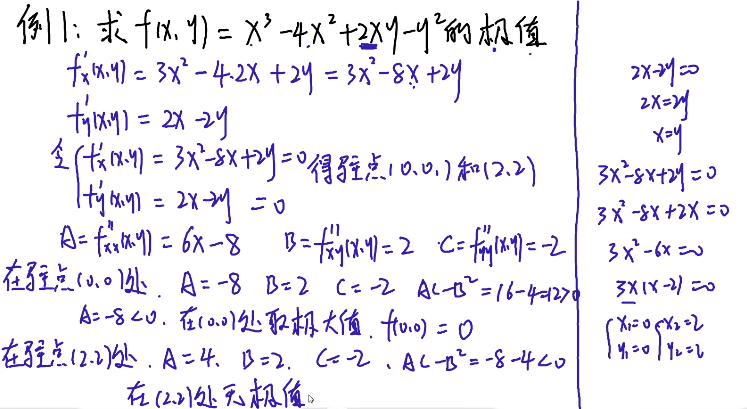 例1: 求 f(x,y) = x³-4x²+2xy-y² 的极值
f'x(x,y) = 3x²-4·2x+2y = 3x²-8x+2y
f'y(x,y) = 2x-2y
令 { f'x(x,y) = 3x²-8x+2y=0 得驻点(0,0,)和(2,2)
f'y(x,y) = 2x-2y =0
A=f''xx(x,y)=6x-8 B=f''xy(x,y)=2 C=f''yy(x,y)=-2
在驻点(0,0)处. A=-8 B=2 C=-2 AC-B²=16-4=12>0
A=-8<0. 在(0,0)处取极大值. f(0,0)=0
在驻点(2,2)处. A=4. B=2. C=-2. AC-B²=-8-4<0
在(2,2)处无极值
2x-2y=0
2x=2y
x=y
3x²-8x+2y=0
3x²-8x+2x=0
3x²-6x=0
3x(x-2)=0
{ x₁=0 { x₂=2
y₁=0 y₂=2